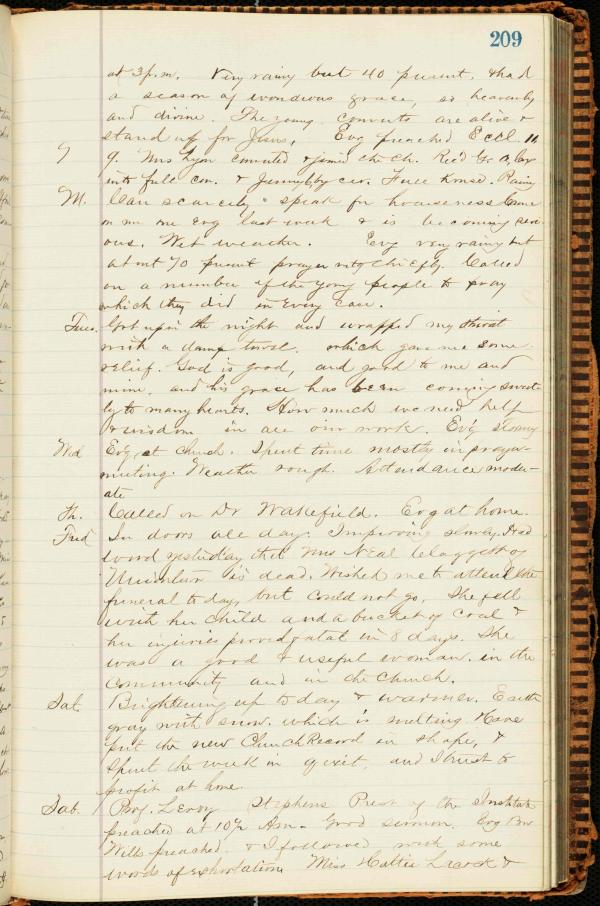 209
at 3 p.m. Very rainy but 40 present. & had
a season of wondrous grace, so heavenly
and divine. The young converts are alive &
stand up for Jesus. Evg preached Eccl. 11,
9. Mrs converted & joined church. Rec'd
into full con. & by cer. Full house. Rainy
M. Can scarcely speak for hoarseness Came
on me one evg last week & is becoming seri-
ous. Wet weather. Evg very rainy but
about 70 present prayer mtg chiefly. Called
on a number of the young people to pray
which they did in every case.
Tues. Got up in the night and wrapped my throat
with a damp towel. which gave me some
relief. God is good, and good to me and
mine. and his grace has been coming sweet-
ly to many hearts. How much we need help
& wisdom in all our work. Evg stormy
Wed Evg. at Church. Spent time mostly in prayer-
meeting. Weather rough. Attendance moder-
ate
Th. Called on Dr Wakefield. Evg at home.
Frid In doors all day. Improving slowly. Had
word yesterday that Mrs Neal Claggett of
is dead. Wished me to attend the
funeral to day, but could not go. She fell
with her child and a bucket of coal &
her injuries proved fatal in 8 days. She
was a good & useful woman. in the
community and in the church.
Sat. Brightening up to day & warmer. Earth
gray with snow. which is melting. Have
put the new Church Record in shape, &
spent the week in quiet. and I trust to
profit at home.
Sab. Prof. Leroy Stephens Prest of the Institute
preached at 10½ Am. Good sermon. Evg Bro
Wills preached. & I followed with some
words of exhortation. Miss Hattie &